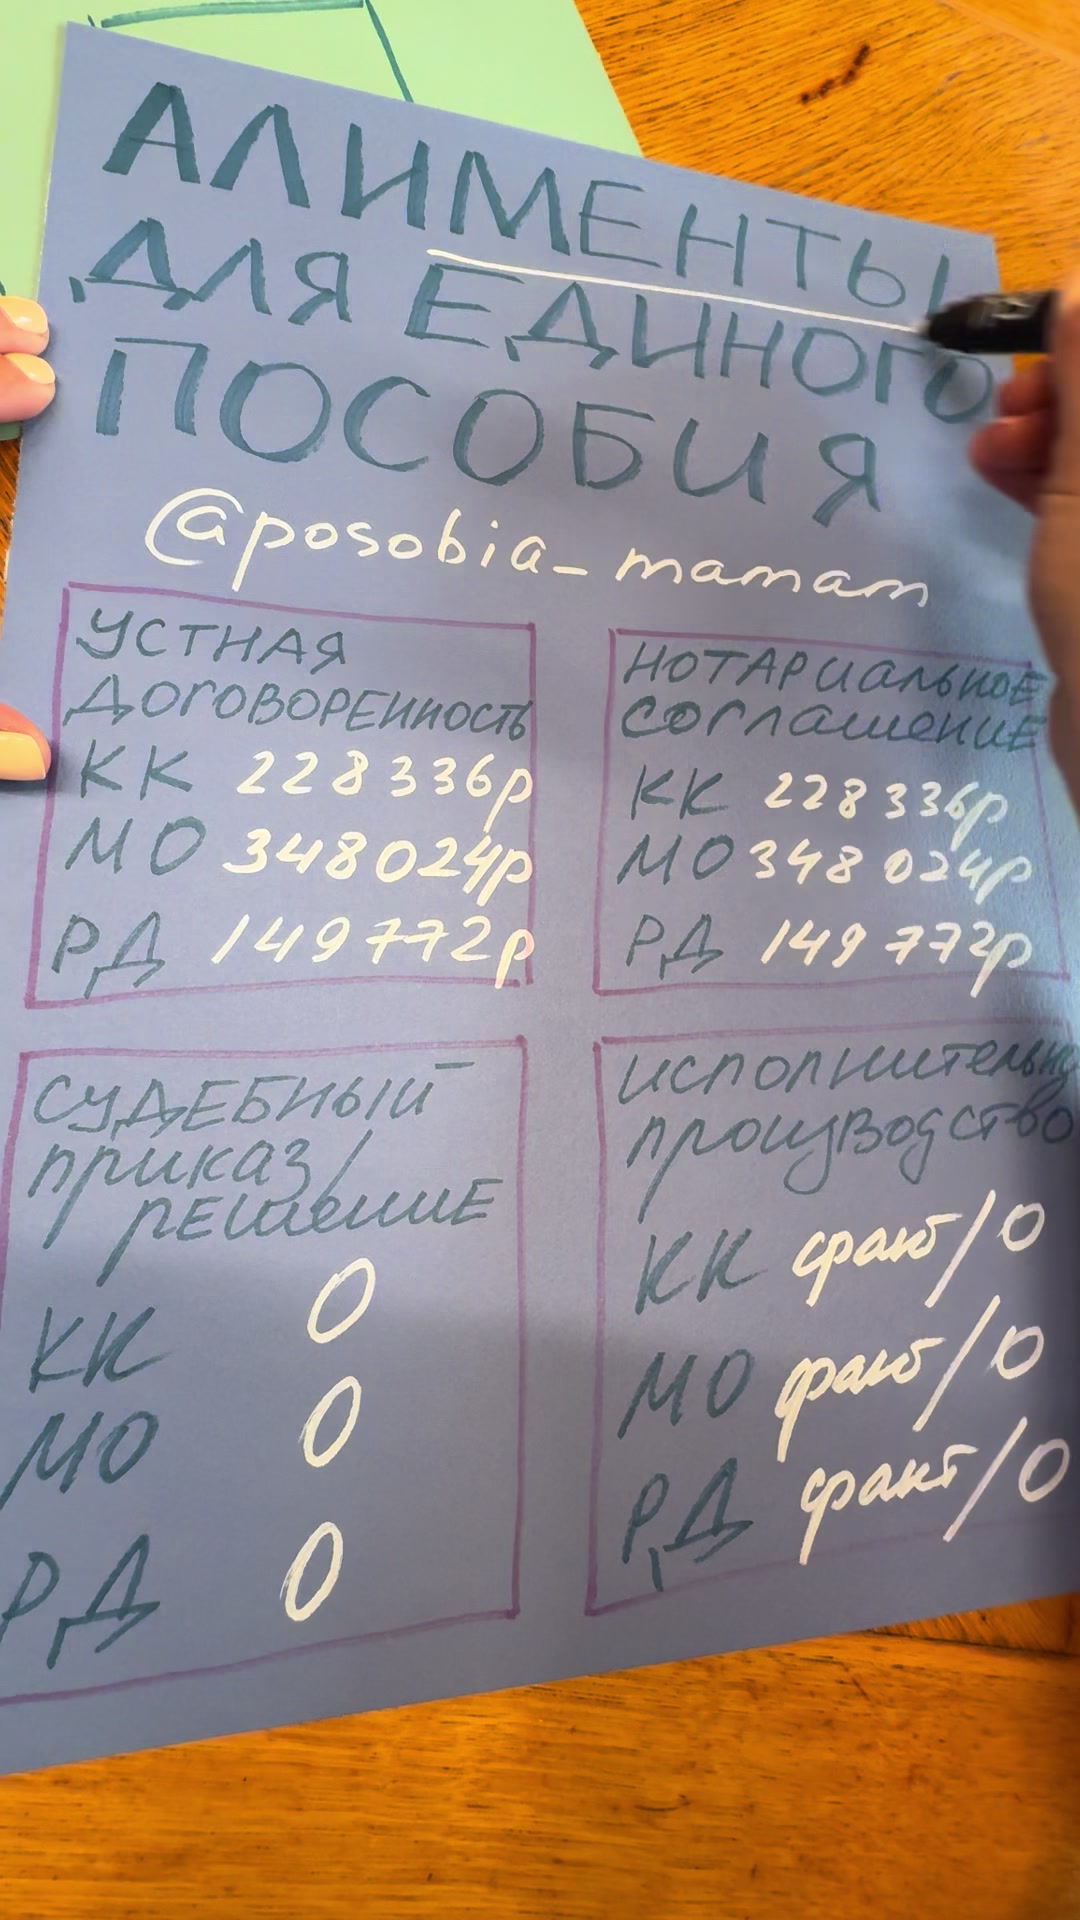 АЛИМЕНТЫ
ДЛЯ ЕДИНОГО
ПОСОБИЯ
@posobia_mamam
УСТНАЯ
ДОГОВОРЕННОСТЬ
КК 228336р
МО 348024р
РД 149772р
НОТАРИАЛЬНОЕ
СОГЛАШЕНИЕ
КК 228336р
МО 348 024р
РД 149 772р
СУДЕБНЫЙ
ПРИКАЗ/
РЕШЕНИЕ
КК 0
МО 0
РД 0
ИСПОЛНИТЕЛЬНО
ПРОИЗВОДСТВО
КК факт/0
МО факт/0
РД факт/0